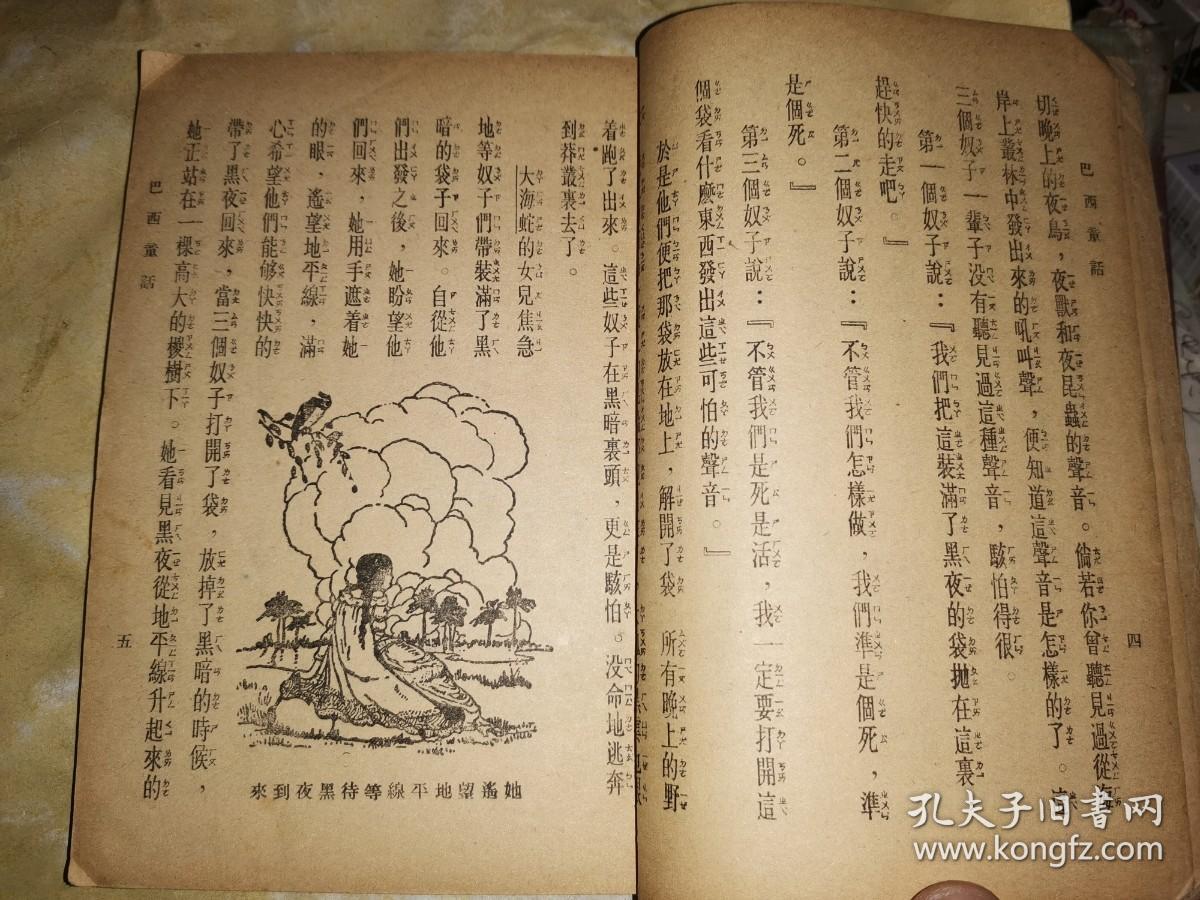 巴西童話
四
切晚上的夜鳥，夜獸和夜昆蟲的聲音。倘若你曾聽見過從海
岸上叢林中發出來的吼叫聲，便知道這聲音是怎樣的了。這
三個奴子一輩子沒有聽見過這種聲音，駭怕得很。
第一個奴子說：『我們把這裝滿了黑夜的袋拋在這裏
趕快的走吧。』
第二個奴子說：『不管我們怎樣做，我們準是個死，準
是個死。』
第三個奴子說：『不管我們是死是活，我一定要打開這
個袋看什麽東西發出這些可怕的聲音。』
於是他們便把那袋放在地上，解開了袋 所有晚上的野
着跑了出來。這些奴子在黑暗裏頭，更是駭怕。沒命地逃奔
到莽叢裏去了。
大海蛇的女兒焦急
地等奴子們帶裝滿了黑
暗的袋子回來。自從他
們出發之後，她盼望他
們回來，她用手遮着她
的眼，遙望地平線，滿
心希望他們能够快快的
帶了黑夜回來，當三個奴子打開了袋，放掉了黑暗的時候，
她正站在一棵高大的椶樹下。她看見黑夜從地平線升起來的
她遙望地平線等待黑夜到來
巴西童話
五
孔夫子旧书网
www.kongfz.com